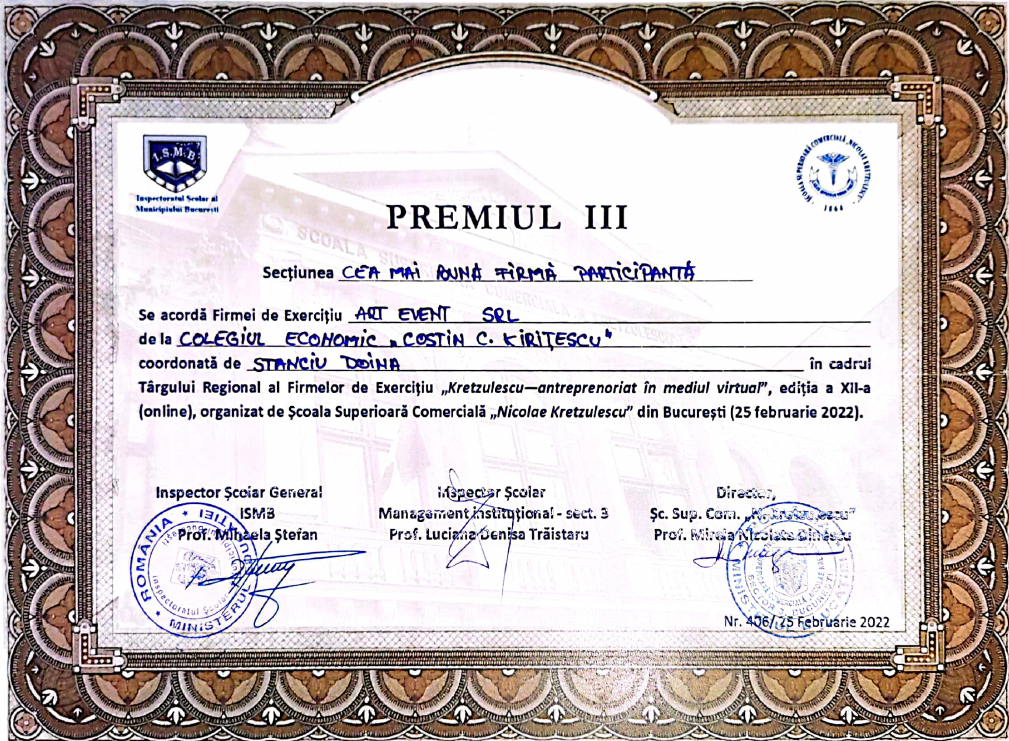 I.S.M.B.
Inspectoratul Școlar al
Municipiului București
ȘCOALA SUPERIOARĂ COMERCIALĂ „NICOLAE KRETZULESCU”
1864
PREMIUL III
Secțiunea CEA MAI BUNĂ FIRMĂ PARTICIPANTĂ
Se acordă Firmei de Exercițiu ART EVENT SRL
de la COLEGIUL ECONOMIC „COSTIN C. KIRIȚESCU"
coordonată de STANCIU DOINA în cadrul
Târgului Regional al Firmelor de Exercițiu „Kretzulescu—antreprenoriat în mediul virtual”, ediția a XII-a
(online), organizat de Școala Superioară Comercială „Nicolae Kretzulescu” din București (25 februarie 2022).
Inspector Școlar General
ISMB
Prof. Mihaela Ștefan
Inspector Școlar
Management instituțional - sect. 3
Prof. Luciana Denisa Trăistaru
Director,
Șc. Sup. Com. „N. Kretzulescu”
Prof. Mirela Nicoleta Dinescu
ROMÂNIA
MINISTERUL EDUCAȚIEI
Inspectoratul Școlar
SECTOR 3 BUCUREȘTI
Nr. 406/ 25 Februarie 2022